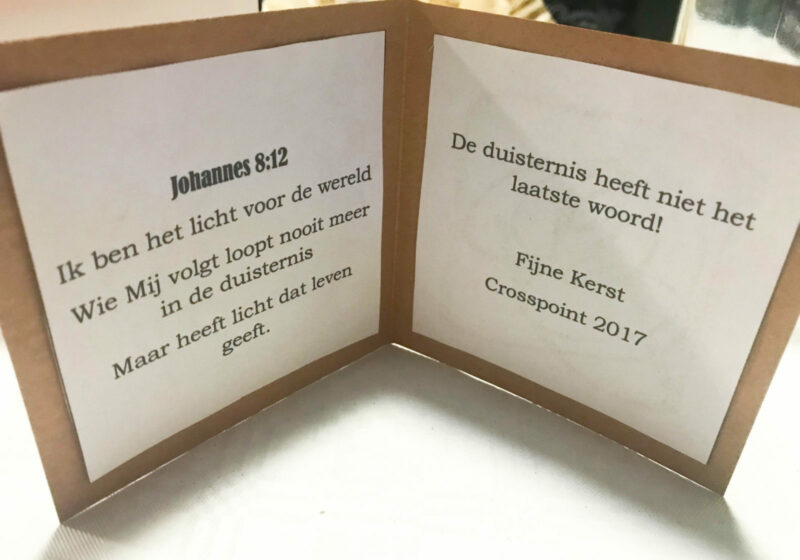 Johannes 8:12
Ik ben het licht voor de wereld
Wie Mij volgt loopt nooit meer
in de duisternis
Maar heeft licht dat leven
geeft.
De duisternis heeft niet het
laatste woord!
Fijne Kerst
Crosspoint 2017